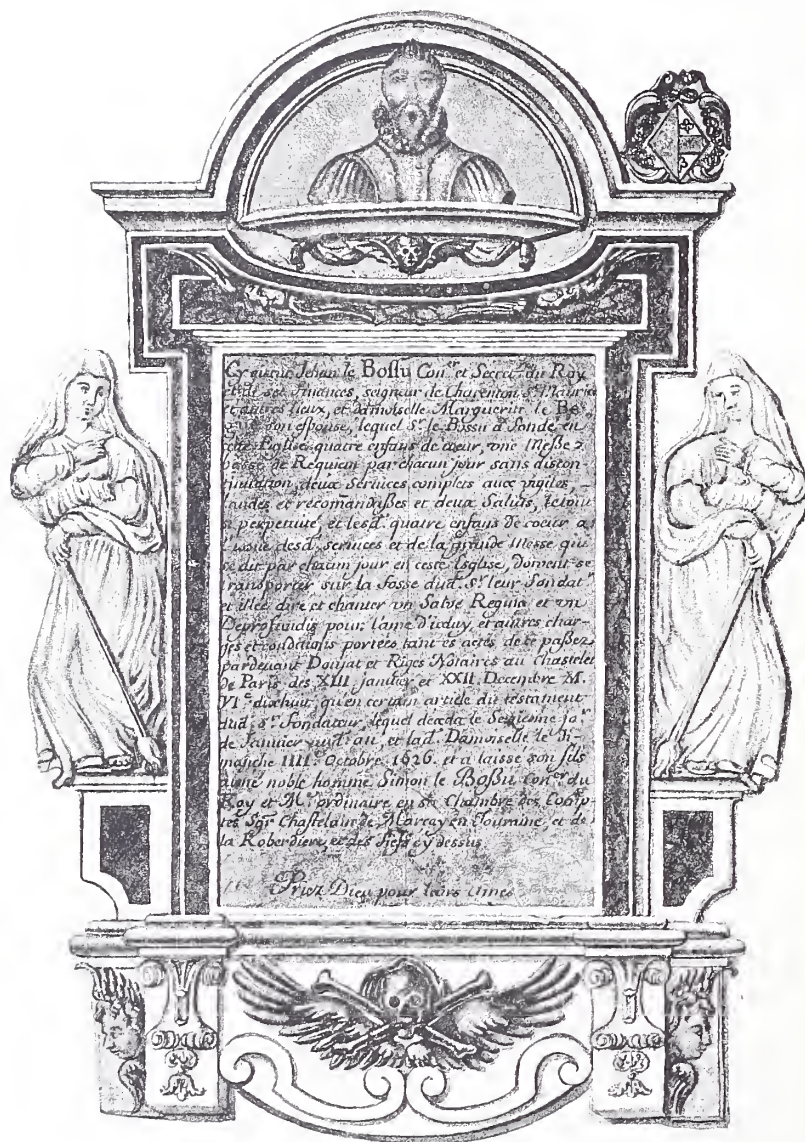 Cy gist Jehan le Bossu Con.er et Secret.re du Roy
et de ses finances, seigneur de Charenton S.t Maurice
et autres lieux, et Damoiselle Marguerite le
son espouse, lequel S.r le Bossu a fondé en
ceste Eglise quatre enfans de coeur, vne Messe
basse de Requiem par chacun jour sans discon-
tinuation, deux seruices complets auec vigiles
laudes et recomādaßes et deux Saluts, le tout
a perpetuité, et lesd. quatre enfans de coeur a
l'issue desd. seruices et de la grande Messe qui
se dit par chacun jour en ceste Esglise, doiuent se
transporter sur la fosse dud. S.r leur fondat.r
et illec dire et chanter vn Salue Regina et vn
Deprofundis pour l'ame d'iceluy, et autres char-
ges et conditions portées tant es actes de ce paßez
pardeuant Doujat et Riges Notaires au chastelet
de Paris des XIII. januier et XXII. Decembre M.
VI.c dixhuit, qu'en certain article du testament
dud. S.r fondateur, lequel deceda le Seizieme jo.r
de Januier aud. an, et lad. Damoiselle le Di-
manche IIII.e Octobre 1626. et a laissé son fils
aisné noble homme Simon le Boßu Con.er du
Roy et M.e ordinaire en sa Chambre des Comp-
tes Sg.r Chastelain de Marcay en Touraine, et de
la Roberdiere, et des fiefs cy dessus
Priez Dieu pour leurs ames